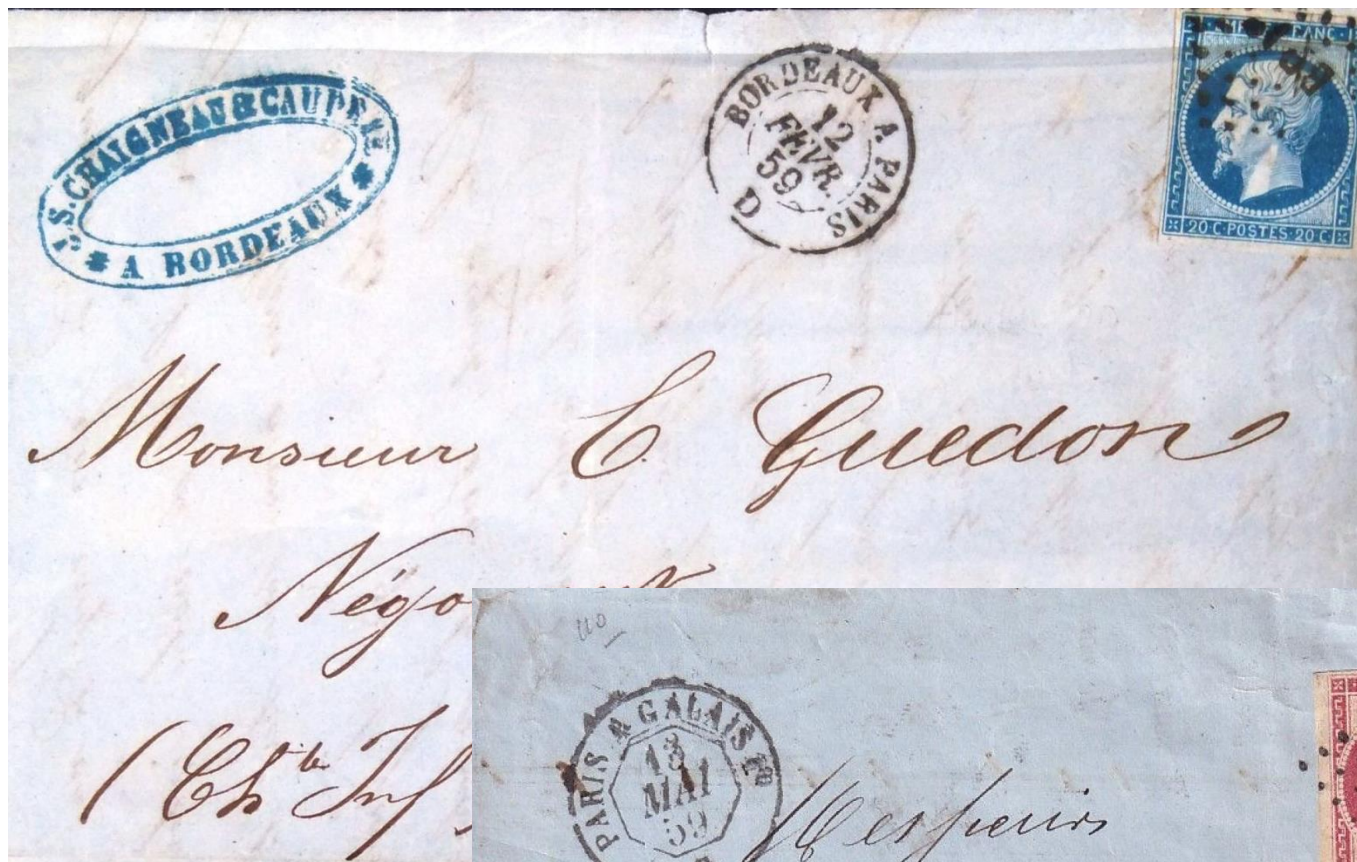 J.S. CHAIGNEAU & CAUDE
A BORDEAUX
BORDEAUX A PARIS
12
FEVR.
59
D
FRANC
BP
20 C. POSTES. 20 C.
Monsieur E Guedon
Négo
(Ch^te Inf
110
PARIS A CALAIS
13
MAI
59
Messieurs